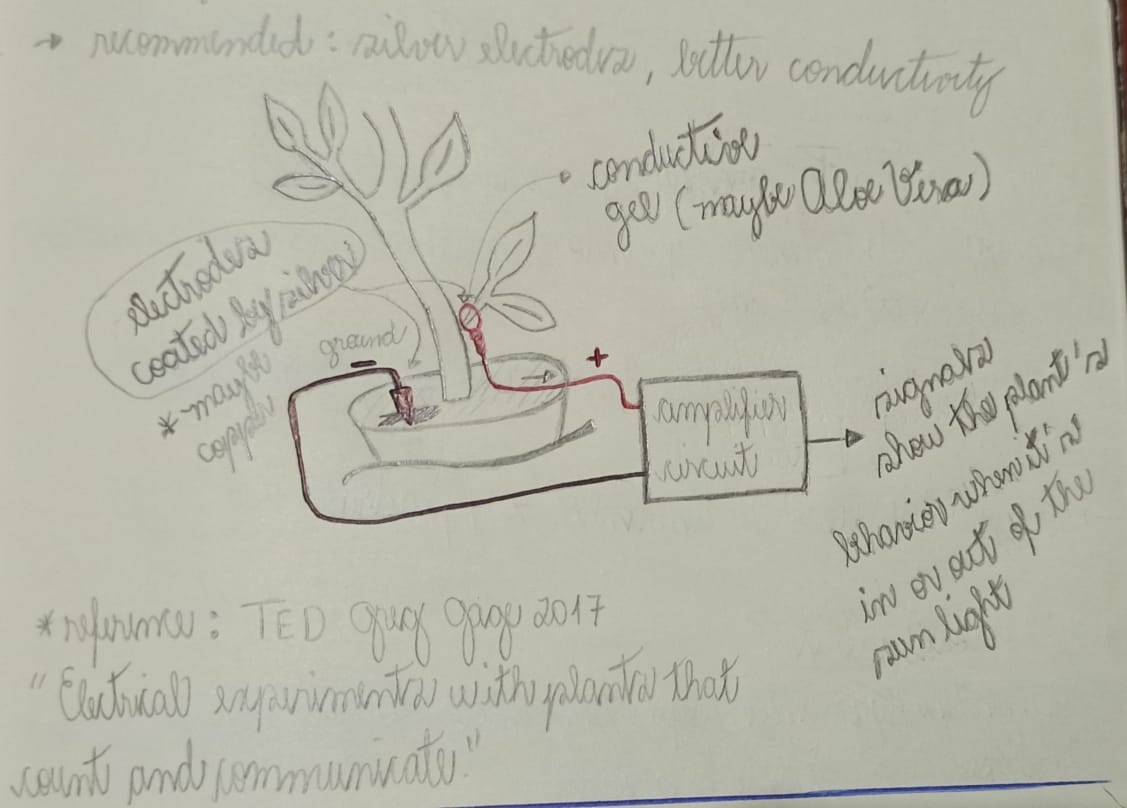 → recommended: silver electrodes, better conductivity
• conductive
gel (maybe Aloe Vera)
electrodes
coated by silver
* maybe
copper
ground
−
+
amplifier
circuit
signals
show the plant's
behavior when it's
in or out of the
sun light
* reference: TED Greg Gage 2017
"Electrical experiments with plants that
count and communicate"